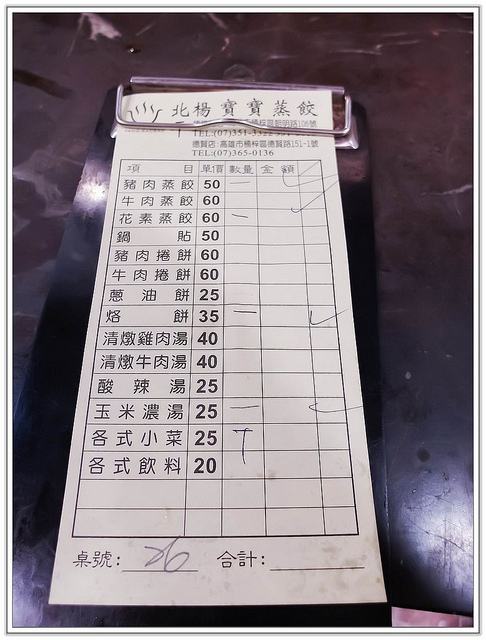 北楊寶寶蒸餃
TEL:(07)351-3322
德賢店:高雄市楠梓區德賢路151-1號
TEL:(07)365-0136
項目 單價 數量 金額
豬肉蒸餃 50 一
牛肉蒸餃 60
花素蒸餃 60 一
鍋貼 50
豬肉捲餅 60
牛肉捲餅 60
蔥油餅 25
烙餅 35 一
清燉雞肉湯 40
清燉牛肉湯 40
酸辣湯 25
玉米濃湯 25 一
各式小菜 25 T
各式飲料 20
桌號: 26 合計: